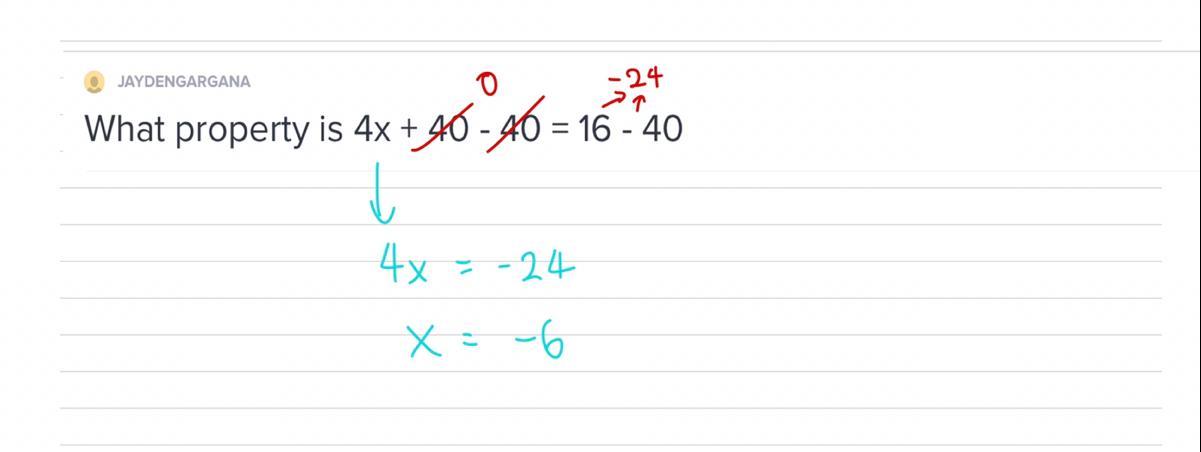 JAYDENGARGANA
0 -24
What property is 4x + 40 - 40 = 16 - 40
4x = -24
x = -6